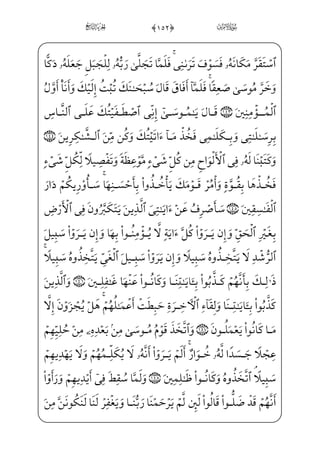 سُورَةُ الأَعْرَافِ ﴿١٥٢﴾ الجُزْءُ التَّاسِعُ
ٱسْتَقَرَّ مَكَانَهُۥ فَسَوْفَ تَرَىٰنِى ۚ فَلَمَّا تَجَلَّىٰ رَبُّهُۥ لِلْجَبَلِ جَعَلَهُۥ دَكًّا
وَخَرَّ مُوسَىٰ صَعِقًا ۚ فَلَمَّآ أَفَاقَ قَالَ سُبْحَـٰنَكَ تُبْتُ إِلَيْكَ وَأَنَا۠ أَوَّلُ
ٱلْمُؤْمِنِينَ ﴿١٤٣﴾ قَالَ يَـٰمُوسَىٰٓ إِنِّى ٱصْطَفَيْتُكَ عَلَى ٱلنَّاسِ
بِرِسَـٰلَـٰتِى وَبِكَلَـٰمِى فَخُذْ مَآ ءَاتَيْتُكَ وَكُن مِّنَ ٱلشَّـٰكِرِينَ
﴿١٤٤﴾ وَكَتَبْنَا لَهُۥ فِى ٱلْأَلْوَاحِ مِن كُلِّ شَىْءٍ مَّوْعِظَةً وَتَفْصِيلًا لِّكُلِّ شَىْءٍ
فَخُذْهَا بِقُوَّةٍ وَأْمُرْ قَوْمَكَ يَأْخُذُوا۟ بِأَحْسَنِهَا ۚ سَأُو۟رِيكُمْ دَارَ
ٱلْفَـٰسِقِينَ ﴿١٤٥﴾ سَأَصْرِفُ عَنْ ءَايَـٰتِىَ ٱلَّذِينَ يَتَكَبَّرُونَ فِى ٱلْأَرْضِ
بِغَيْرِ ٱلْحَقِّ وَإِن يَرَوْا۟ كُلَّ ءَايَةٍ لَّا يُؤْمِنُوا۟ بِهَا وَإِن يَرَوْا۟ سَبِيلَ
ٱلرُّشْدِ لَا يَتَّخِذُوهُ سَبِيلًا وَإِن يَرَوْا۟ سَبِيلَ ٱلْغَىِّ يَتَّخِذُوهُ سَبِيلًا ۚ
ذَٰلِكَ بِأَنَّهُمْ كَذَّبُوا۟ بِـَٔايَـٰتِنَا وَكَانُوا۟ عَنْهَا غَـٰفِلِينَ ﴿١٤٦﴾ وَٱلَّذِينَ
كَذَّبُوا۟ بِـَٔايَـٰتِنَا وَلِقَآءِ ٱلْـَٔاخِرَةِ حَبِطَتْ أَعْمَـٰلُهُمْ ۚ هَلْ يُجْزَوْنَ إِلَّا
مَا كَانُوا۟ يَعْمَلُونَ ﴿١٤٧﴾ وَٱتَّخَذَ قَوْمُ مُوسَىٰ مِنۢ بَعْدِهِۦ مِنْ حُلِيِّهِمْ
عِجْلًا جَسَدًا لَّهُۥ خُوَارٌ ۚ أَلَمْ يَرَوْا۟ أَنَّهُۥ لَا يُكَلِّمُهُمْ وَلَا يَهْدِيهِمْ
سَبِيلًا ۘ ٱتَّخَذُوهُ وَكَانُوا۟ ظَـٰلِمِينَ ﴿١٤٨﴾ وَلَمَّا سُقِطَ فِىٓ أَيْدِيهِمْ وَرَأَوْا۟
أَنَّهُمْ قَدْ ضَلُّوا۟ قَالُوا۟ لَئِن لَّمْ يَرْحَمْنَا رَبُّنَا وَيَغْفِرْ لَنَا لَنَكُونَنَّ مِنَ